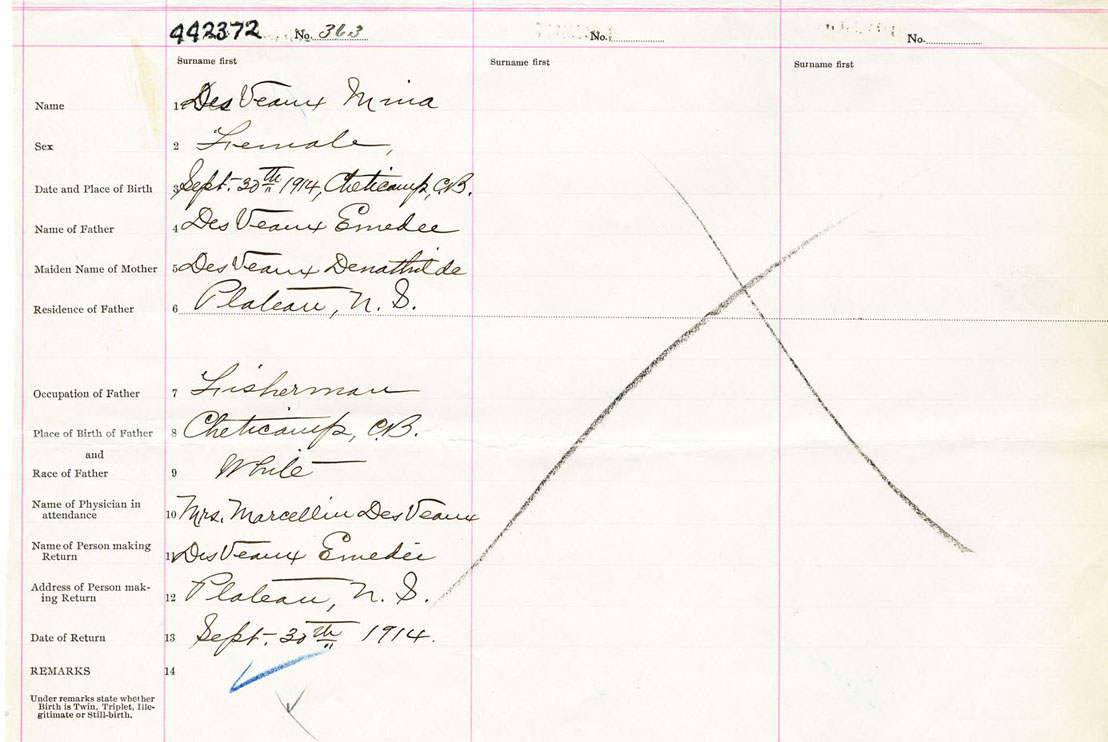 442372 No. 363 No. No.
Surname first Surname first Surname first
Name 1 DesVeaux Mina
Sex 2 Female,
Date and Place of Birth 3 Sept. 30th 1914, Cheticamp, C.B.
Name of Father 4 DesVeaux Emedée
Maiden Name of Mother 5 DesVeaux Denathilde
Residence of Father 6 Plateau, N. S.
Occupation of Father 7 Fisherman
Place of Birth of Father 8 Cheticamp, C.B.
and
Race of Father 9 White
Name of Physician in
attendance 10 Mrs. Marcellin DesVeaux
Name of Person making
Return 11 DesVeaux Emedée
Address of Person mak-
ing Return 12 Plateau, N. S.
Date of Return 13 Sept. 30th 1914.
REMARKS 14
Under remarks state whether
Birth is Twin, Triplet, Ille-
gitimate or Still-birth.